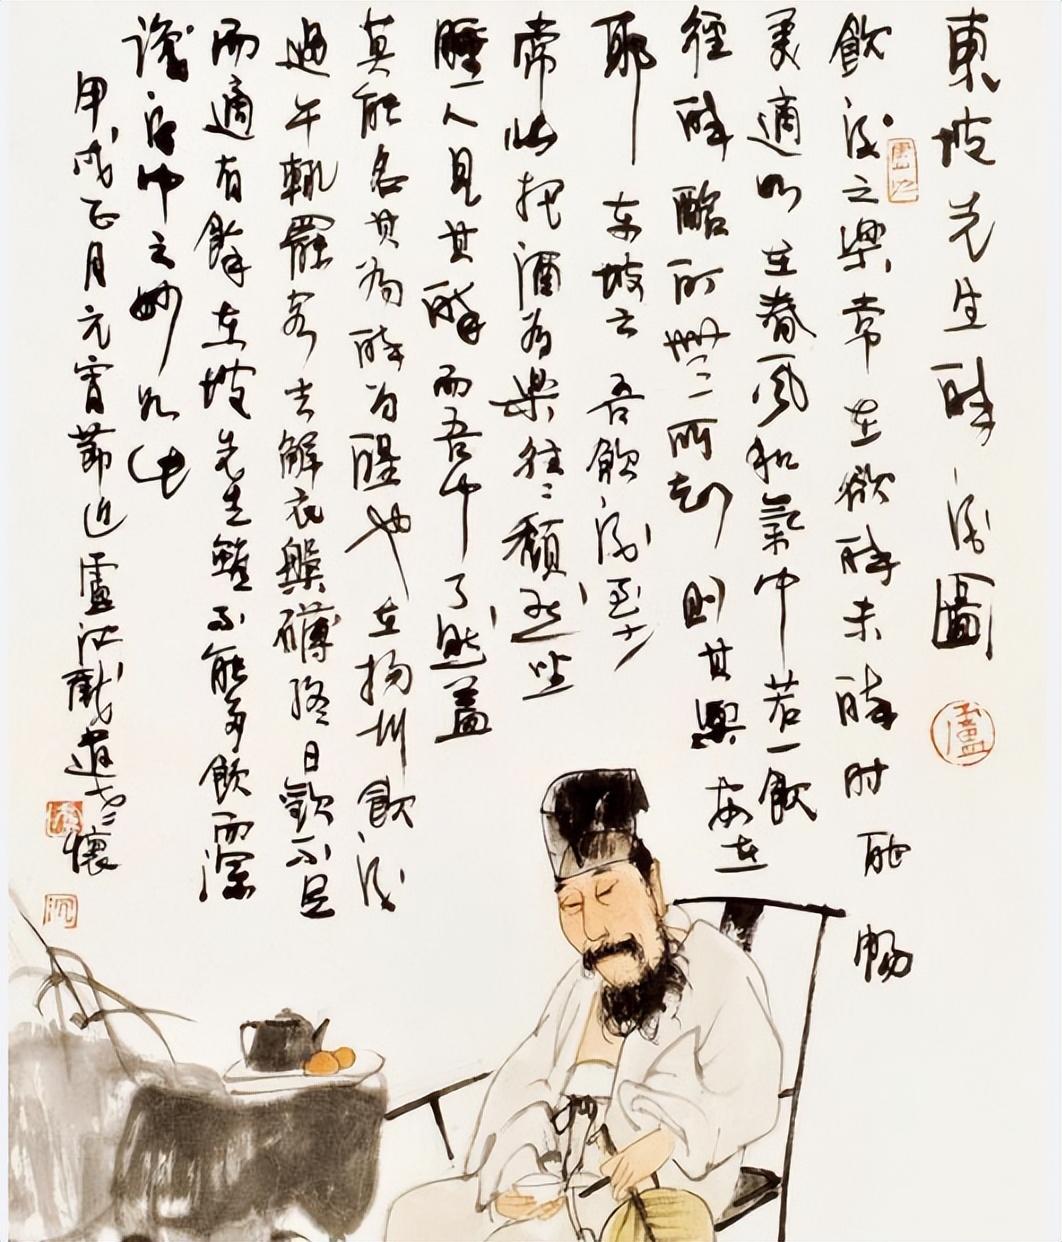 東坡先生醉酒圖
飲酒之樂常在欲醉未醉時酣暢
美適如在春風和氣中若一飲
徑醉酩酊無所知則其樂安在
耶東坡云吾飲酒至少
常以把酒為樂往々頹然坐
睡人見其醉而吾中了然蓋
莫能名其為醉為醒也在揚州飲酒
過午輒罷客去解衣槃礴終日歡不足
而適有餘東坡先生雖不能多飲而深
識酒中之妙如此
甲戌正月元宵節近盧沉戲遣老懷
盧
沉